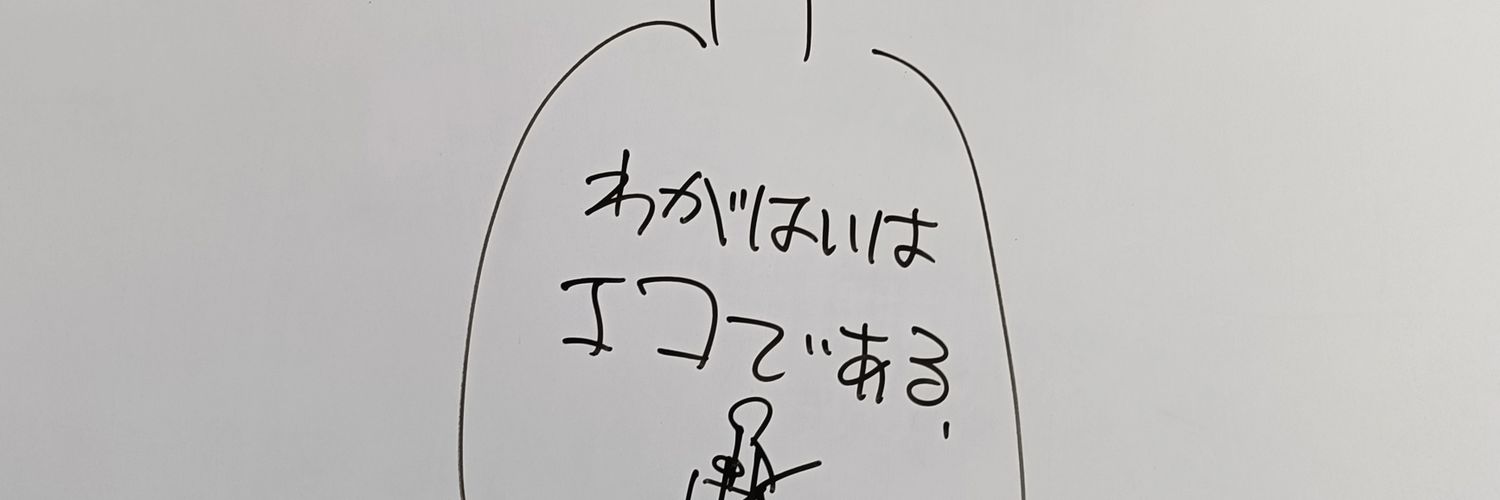 わがはいは
エコである.